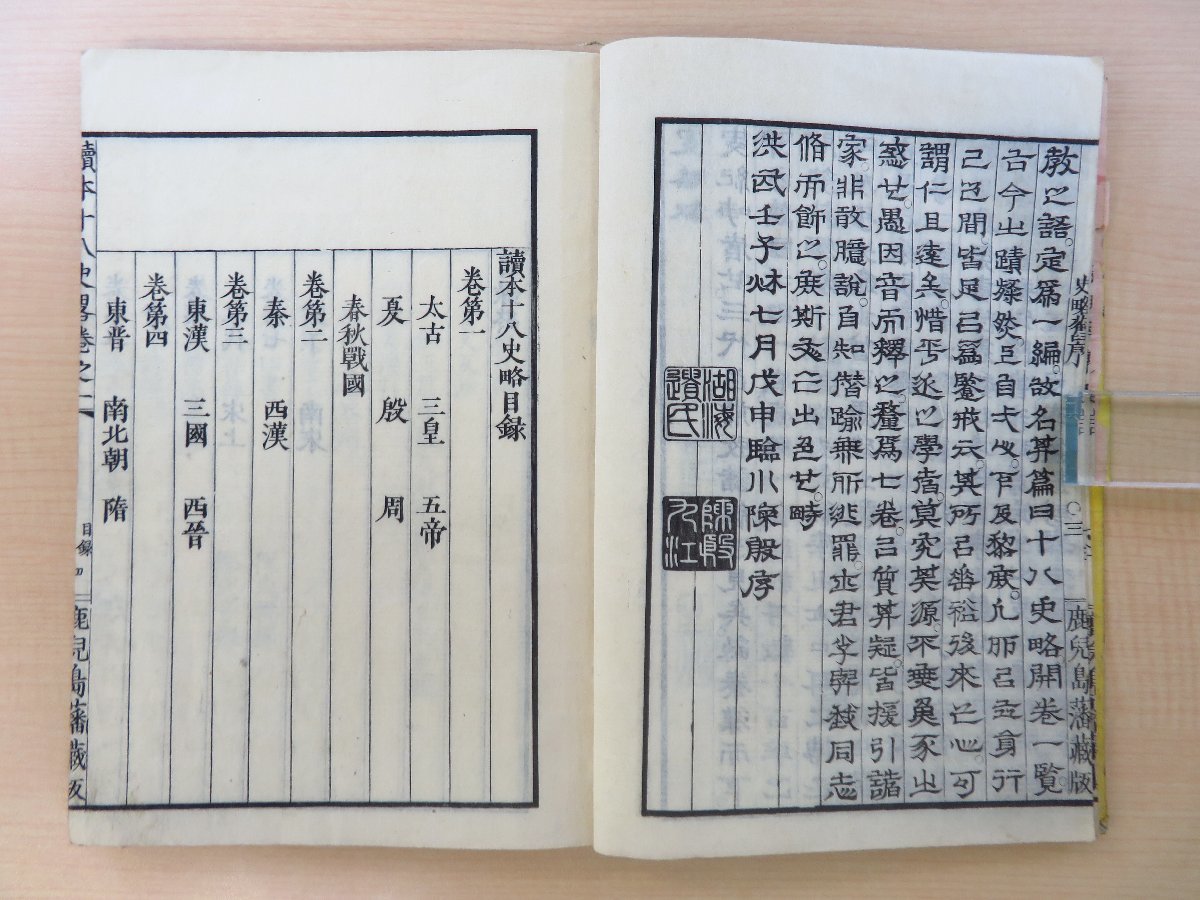 史略舊序 ○三 鹿兒島藩藏版
教之語。定爲一編。故名其篇曰十八史略開卷一覽。
古今之蹟燦然上自天子。下及黎庶。凡所以立身行
己之間。皆足以爲鑒戒云。其所以垂裕後來之心。可
謂仁且遠矣。惜乎近之學者。莫究其源。不豕之
惑也。愚因音而釋之。釐爲七卷。以質其疑。皆援引諸
家。非敢臆說。自知僭踰無所逃罪。世君子與我同志
脩而飾之。庶斯文也。時
洪武壬子秋七月戊申臨川陳殷序
湖海
陳殷九江
讀本十八史略目録
卷第一
太古 三皇 五帝
夏 殷 周
春秋戰國
卷第二
秦 西漢
卷第三
東漢 三國 西晉
卷第四
東晉 南北朝 隋
讀本十八史畧卷之一 目録 四 鹿兒島藩藏版